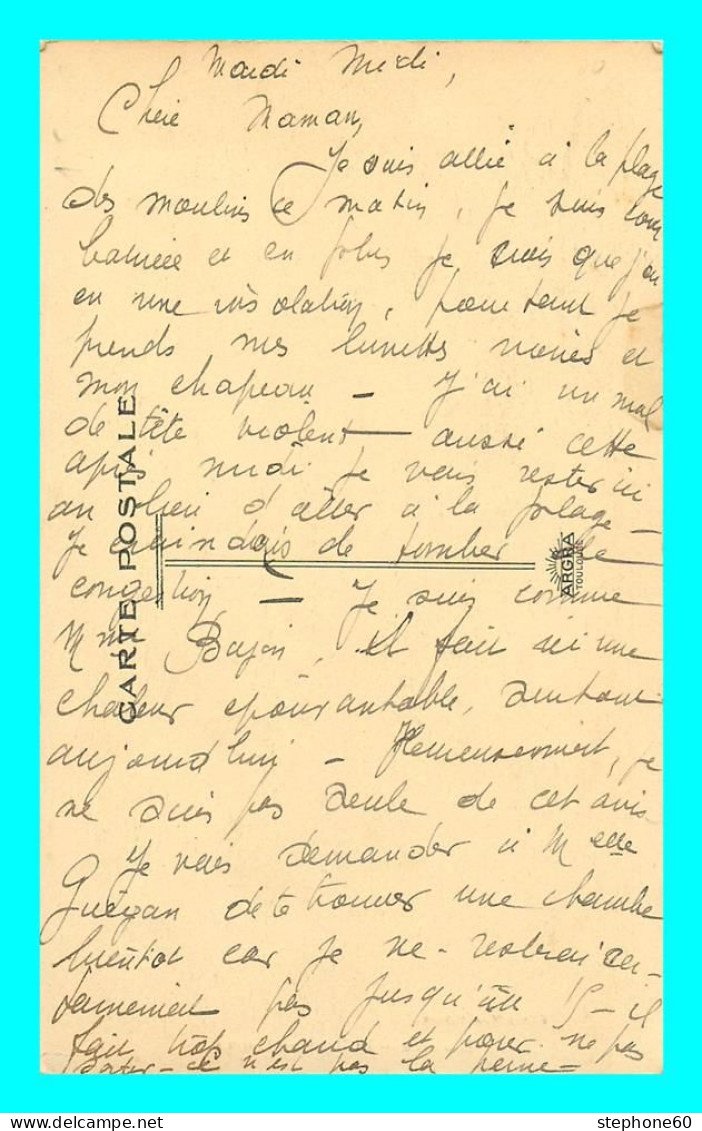 Mardi Midi,
Chère Maman,
Je suis allée à la plage
des moulins ce matin, je suis com
et en plus je crois que j'ai
eu une insolation, pourtant je
prends mes lunettes noires et
mon chapeau – J'ai un mal
de tête violent – aussi cette
après midi je vais rester ici
au lieu d'aller à la plage –
Je craindrais de tomber de
congestion – Je suis comme
Mme Bajon, il fait ici une
chaleur épouvantable, surtout
aujourd'hui – Heureusement, je
ne suis pas seule de cet avis
Je vais demander à Melle
Guégan de te trouver une chambre
bientôt car je ne resterai cer-
tainement pas jusqu'au 15 – il
fait trop chaud et pour ne pas
sortir – ce n'est pas la peine –
CARTE POSTALE
ARGRA
TOULOUSE
stephone60